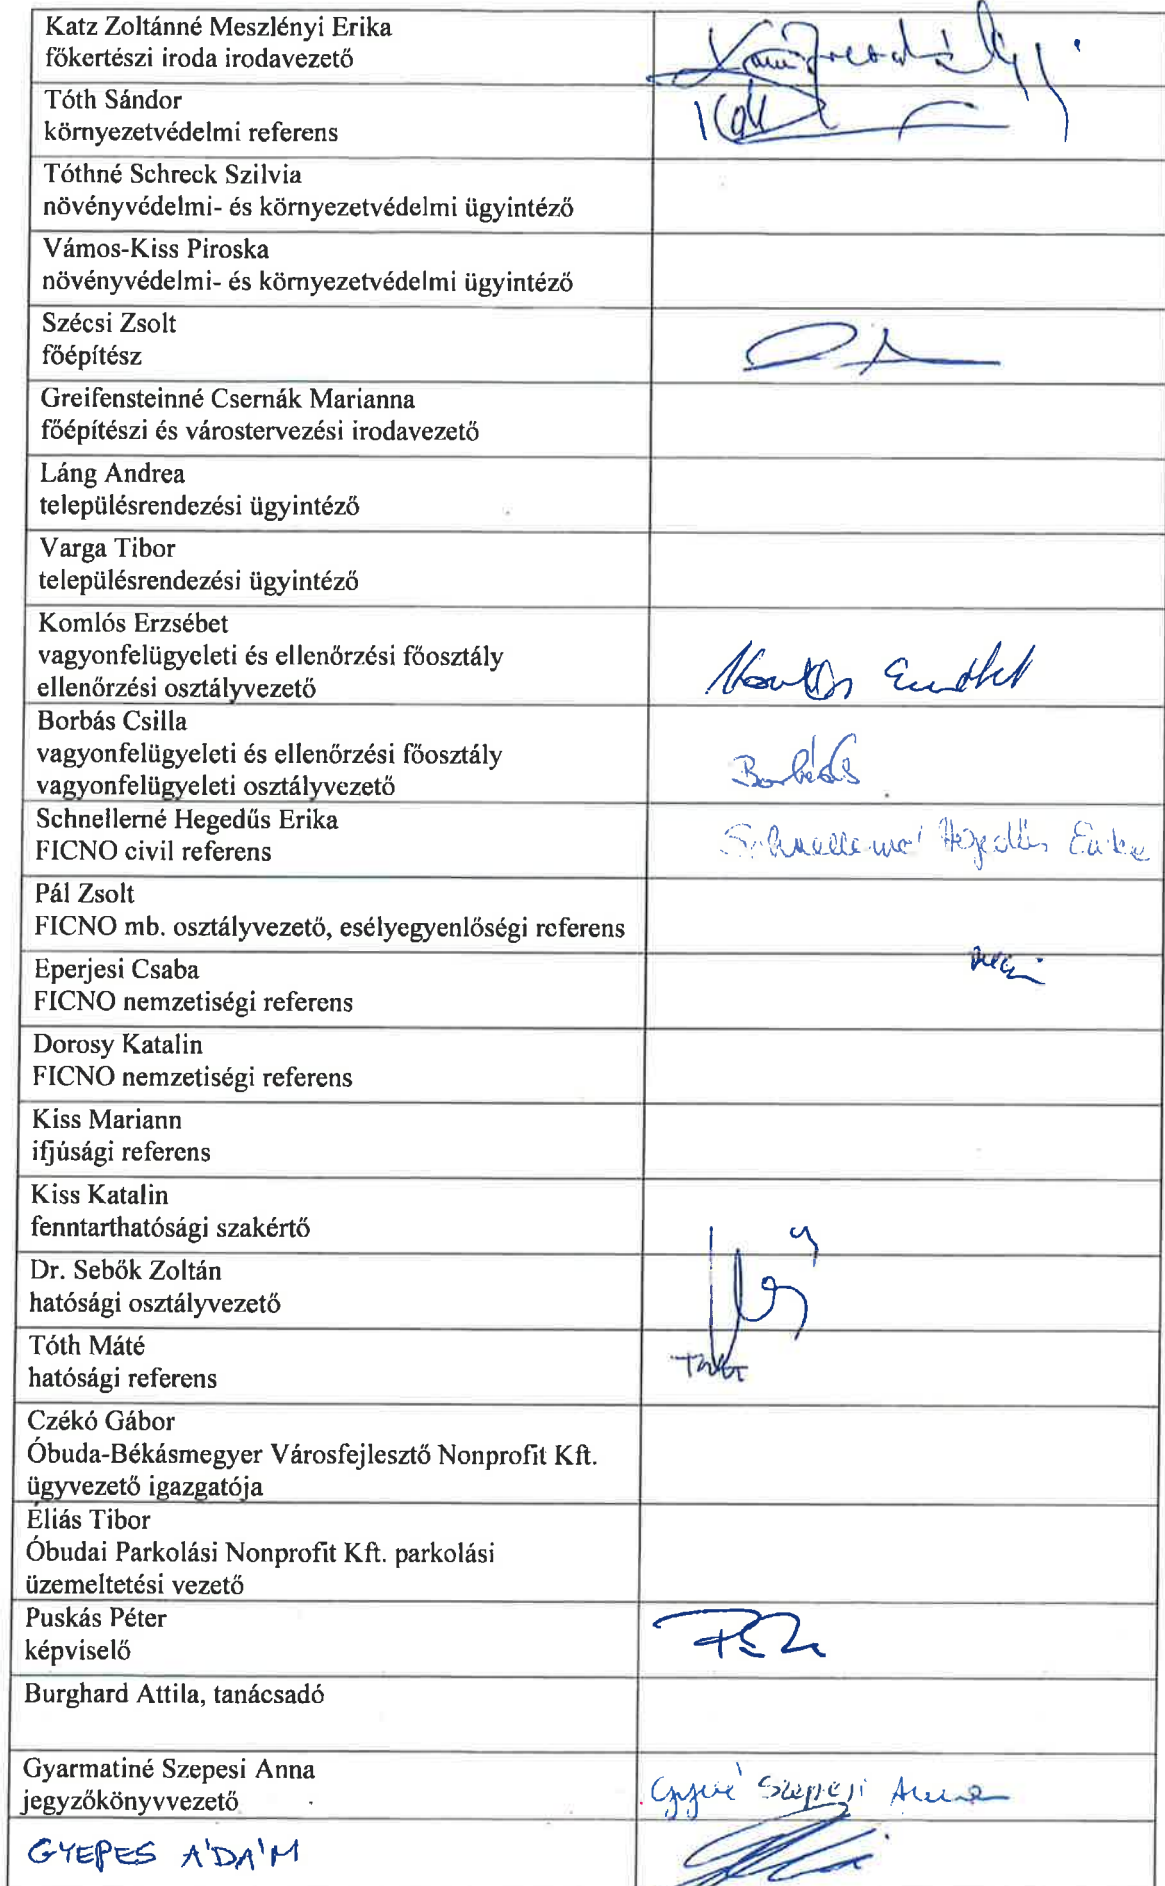 Katz Zoltánné Meszlényi Erika
főkertészi iroda irodavezető
Tóth Sándor
környezetvédelmi referens
Tóthné Schreck Szilvia
növényvédelmi- és környezetvédelmi ügyintéző
Vámos-Kiss Piroska
növényvédelmi- és környezetvédelmi ügyintéző
Szécsi Zsolt
főépítész
Greifensteinné Csernák Marianna
főépítészi és várostervezési irodavezető
Láng Andrea
településrendezési ügyintéző
Varga Tibor
településrendezési ügyintéző
Komlós Erzsébet
vagyonfelügyeleti és ellenőrzési főosztály
ellenőrzési osztályvezető
Borbás Csilla
vagyonfelügyeleti és ellenőrzési főosztály
vagyonfelügyeleti osztályvezető
Schnellerné Hegedűs Erika
FICNO civil referens
Schnellerné Hegedűs Erika
Pál Zsolt
FICNO mb. osztályvezető, esélyegyenlőségi referens
Eperjesi Csaba
FICNO nemzetiségi referens
Dorosy Katalin
FICNO nemzetiségi referens
Kiss Mariann
ifjúsági referens
Kiss Katalin
fenntarthatósági szakértő
Dr. Sebők Zoltán
hatósági osztályvezető
Tóth Máté
hatósági referens
Czékó Gábor
Óbuda-Békásmegyer Városfejlesztő Nonprofit Kft.
ügyvezető igazgatója
Éliás Tibor
Óbudai Parkolási Nonprofit Kft. parkolási
üzemeltetési vezető
Puskás Péter
képviselő
Burghard Attila, tanácsadó
Gyarmatiné Szepesi Anna
jegyzőkönyvvezető
Gyné Szepesi Anna
GYEPES ÁDÁM